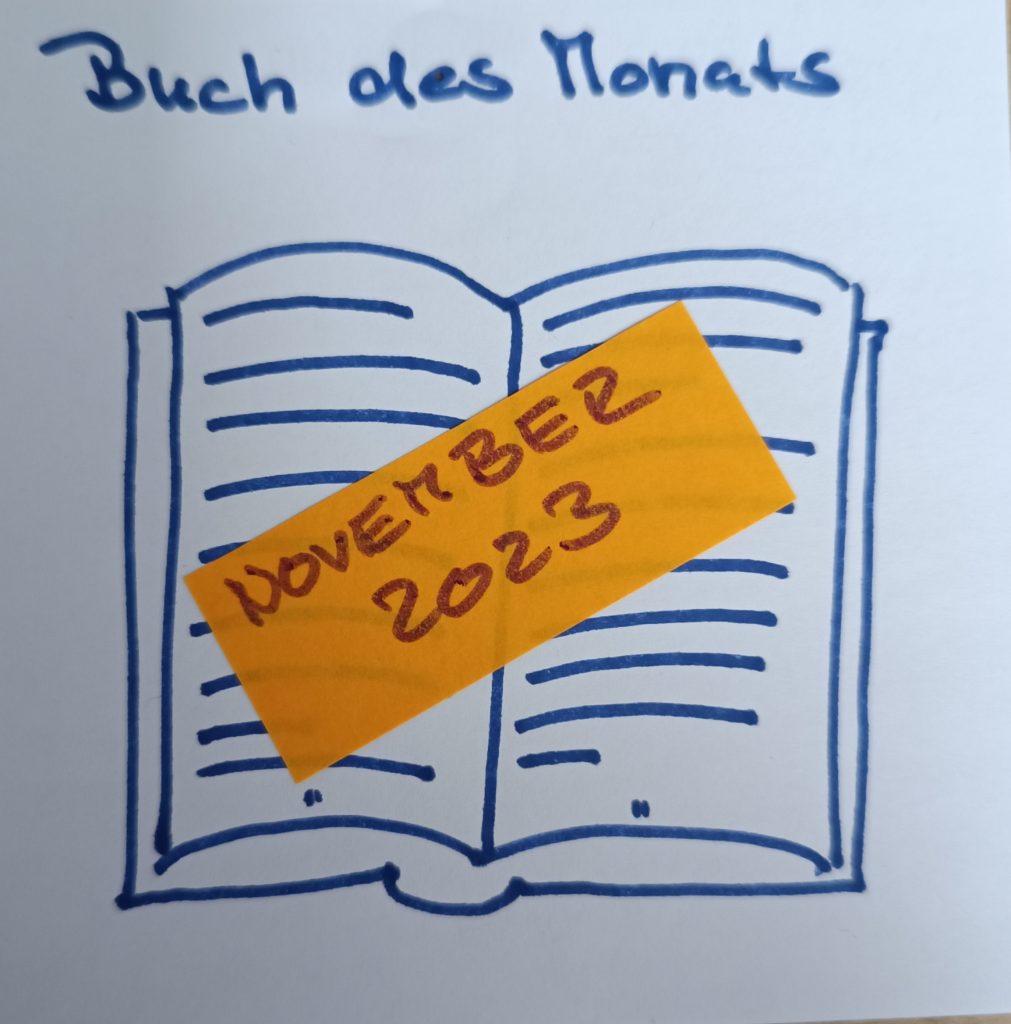 Buch des Monats
NOVEMBER
2023